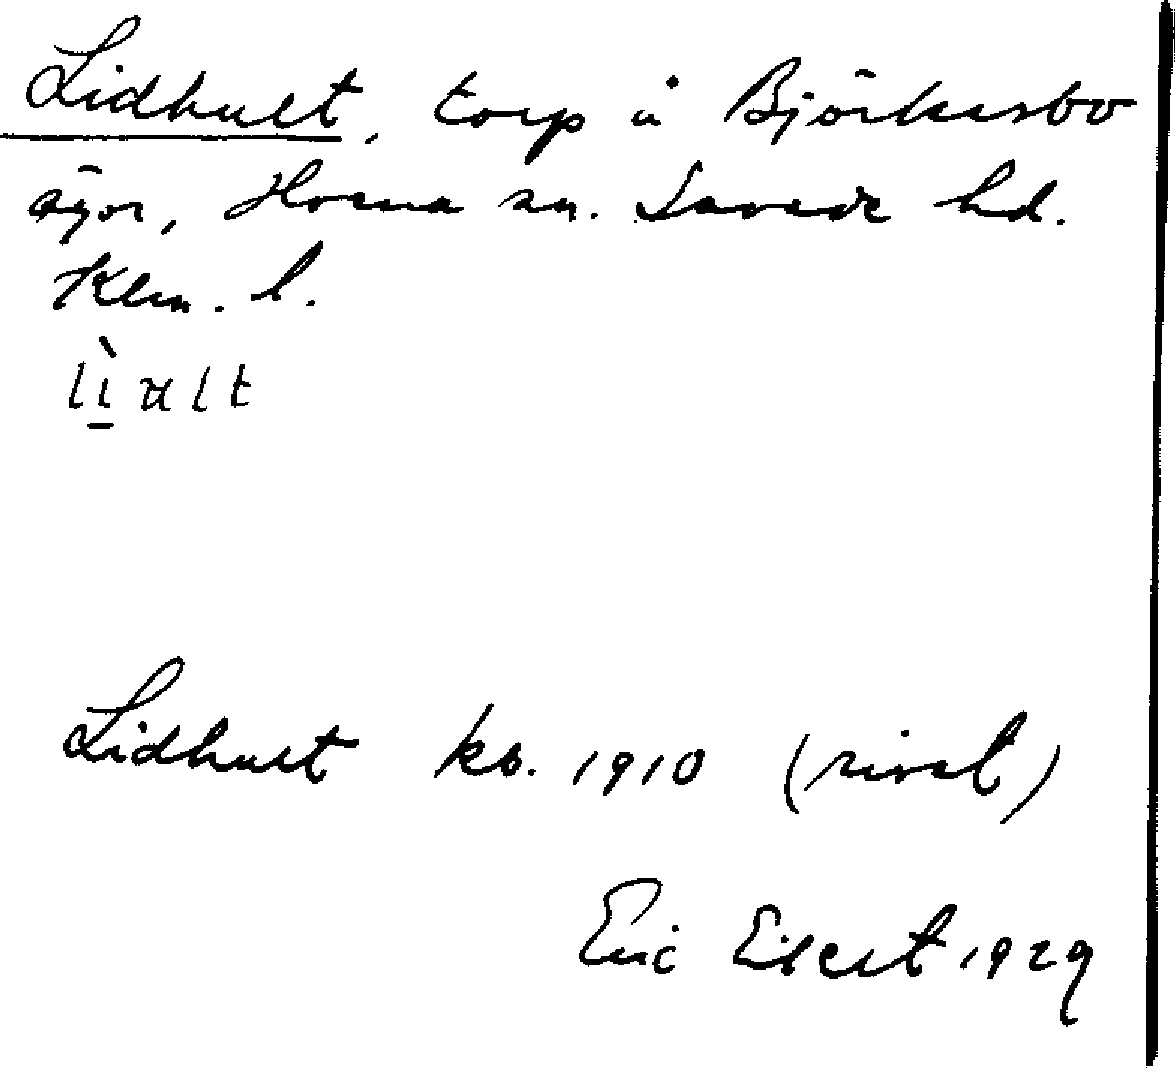 Lidhult, torp å Björkesbo
ägor, Horna sn. Sevede hd.
Klm. l.
Lidhult kb. 1910 (rivet)
Eric Elgert 1929